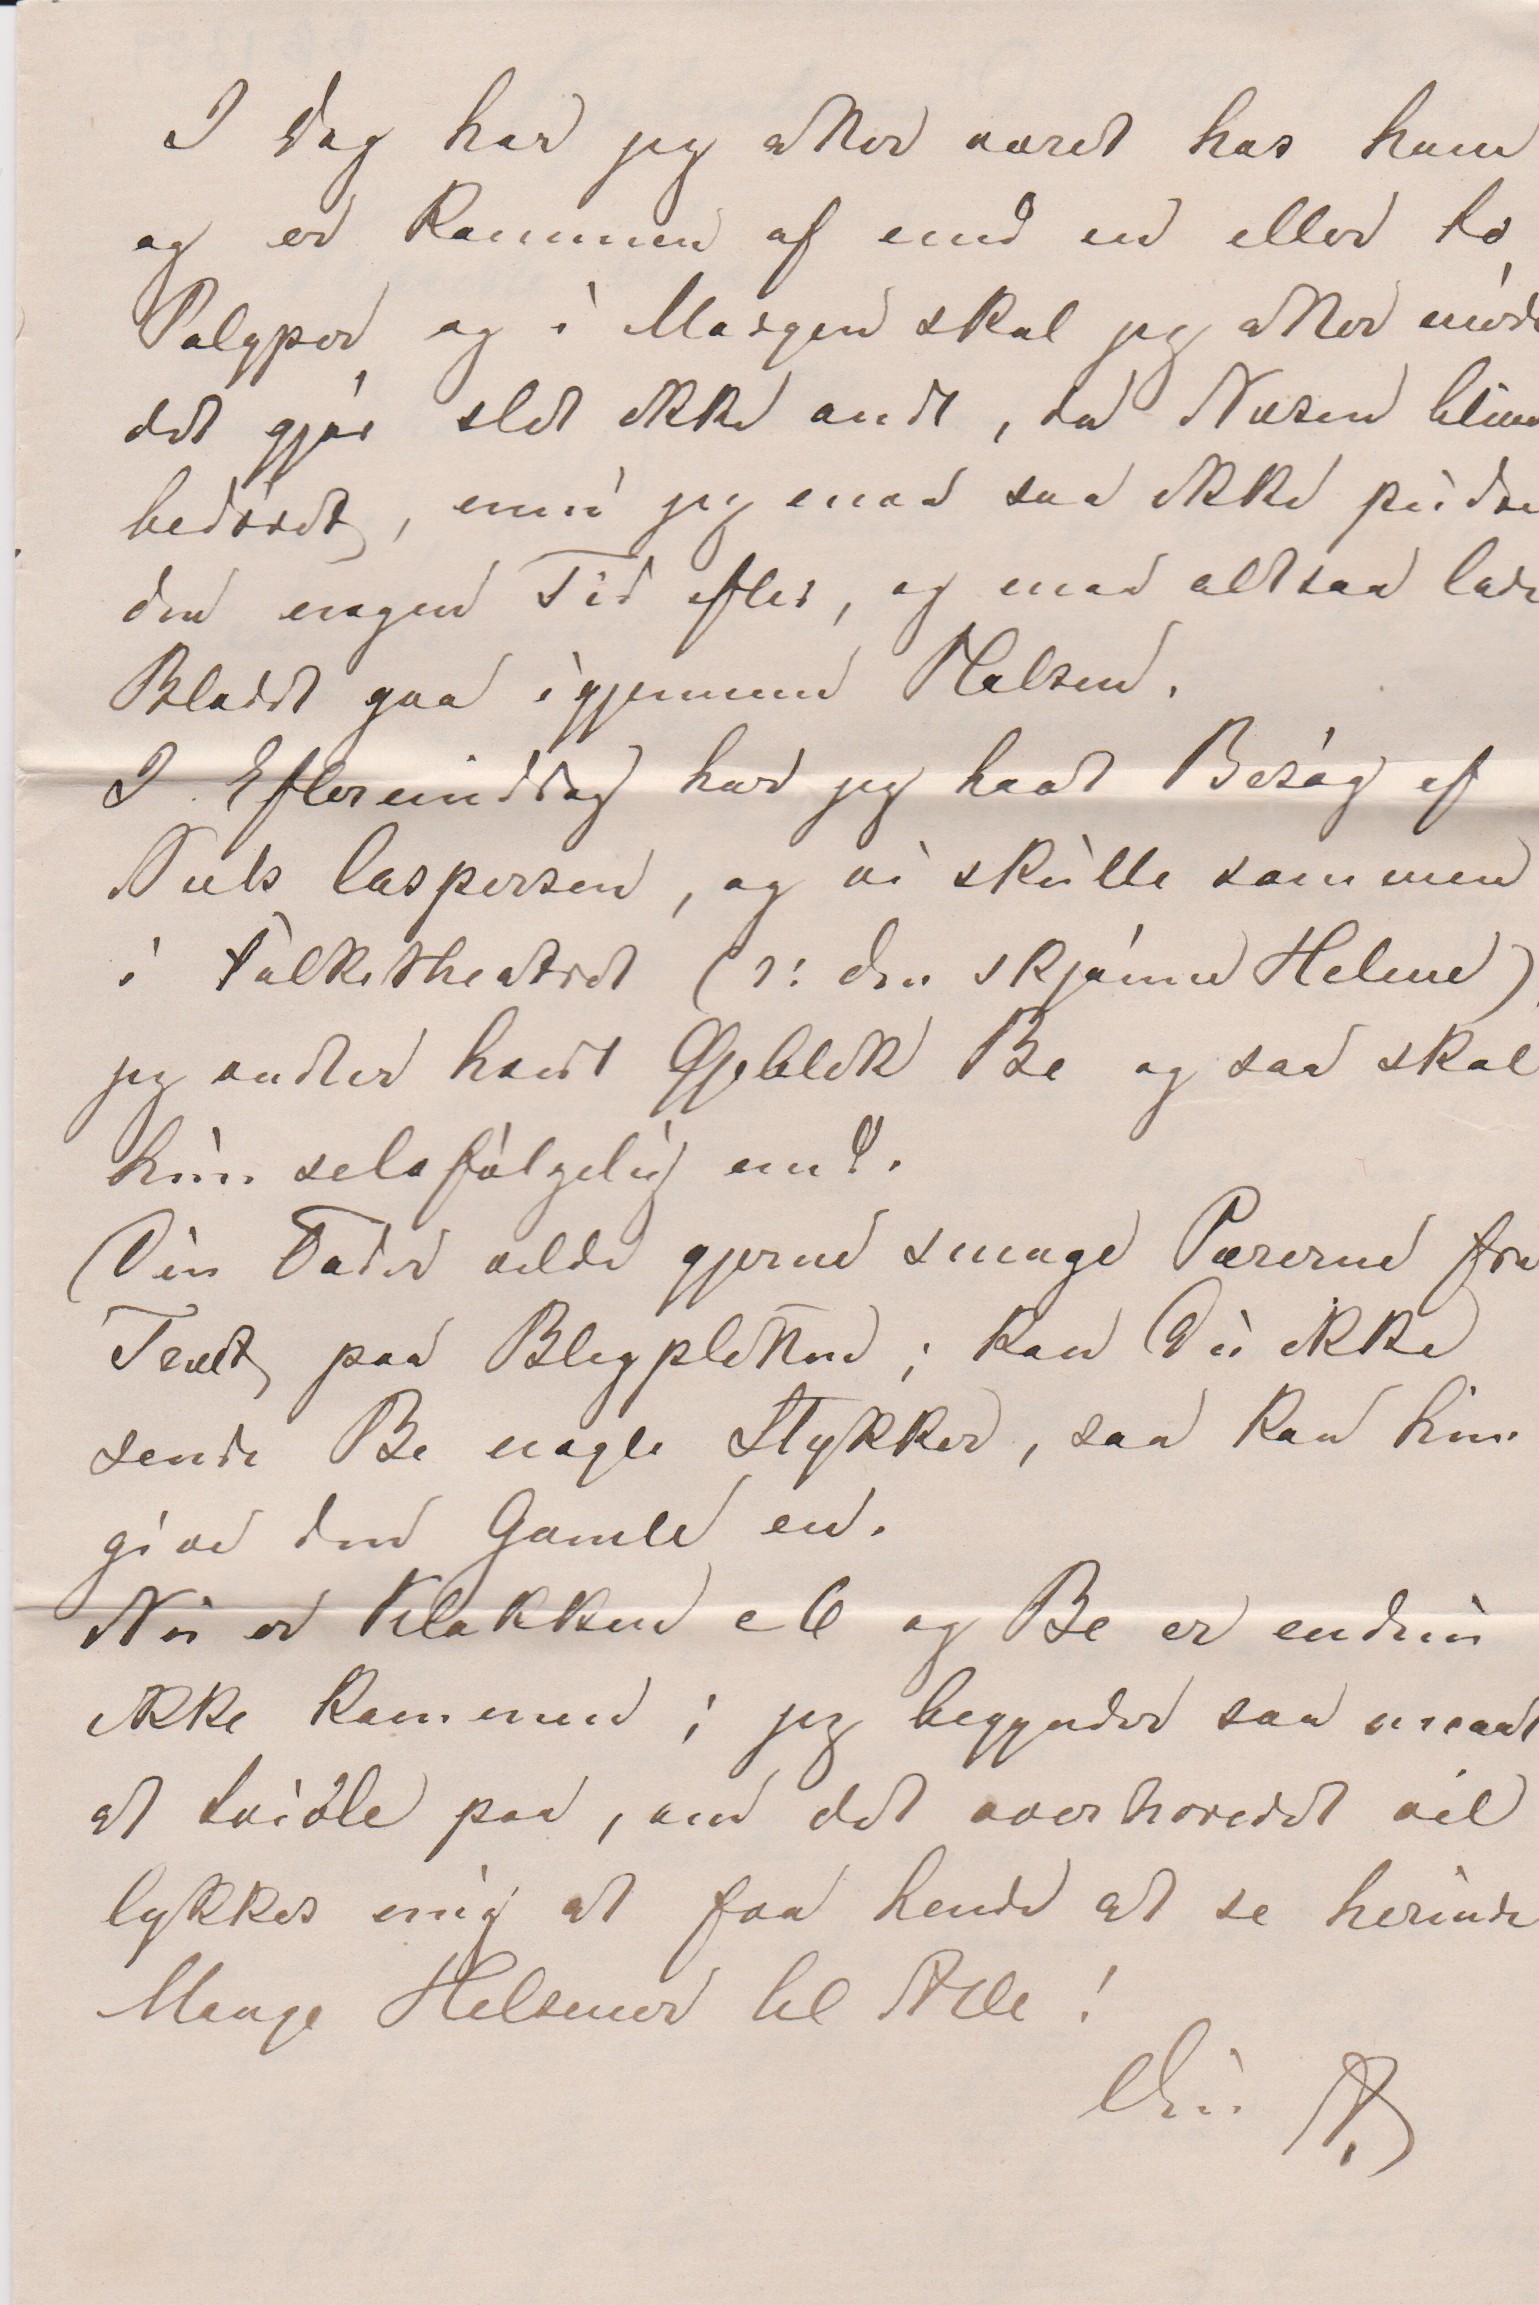 I Dag har jeg atter været hos ham
og er kommen af med en eller to
Polyper, og i Morgen skal jeg atter møde
det gjør slet ikke ondt, da Næsen bliver
bedøvet, men jeg maa saa ikke pudse
den nogen Tid efter, og maa altsaa lade
Blodet gaa igjennem Halsen.
I Eftermiddag har jeg havt Besøg af
Niels Caspersen, og vi skulle sammen
i Folketheatret (ɔ: den skjønne Helene)
jeg venter hvert Øjeblik Be og saa skal
hun selvfølgelig med.
Din Fader vilde gjerne smage Pærerne fra
Træet paa Blegpletten; kan Du ikke
sende Be nogle Stykker, saa kan hun
give den Gamle en.
Nu er Klokken 6 og Be er endnu
ikke kommen; jeg begynder saa smaat
at tvivle paa, om det overhovedet vil
lykkes mig at faa hende at se herinde
Mange Hilsener til Alle!
Din A.